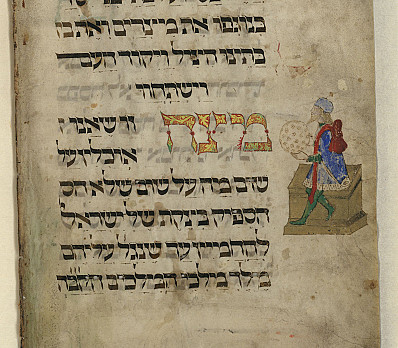 בנגפו את מצרים ואת בתי
בתינו הציל ויקוד העם
וישתחוו
מצה זו שאנו
אוכלין על
שום מה על שום שלא הס
הספיק בצקת של ישראל
להחמיץ עד שנגל עליהם
מלך מלכי המלכים הקבה